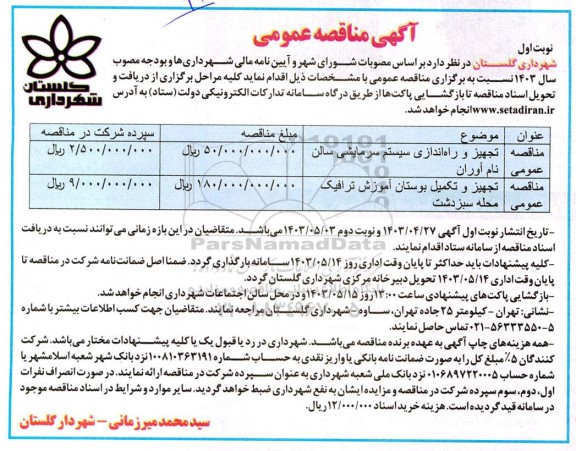 آگهی مناقصه عمومی
نوبت اول
شهرداری گلستان در نظر دارد بر اساس مصوبات شورای شهر و آیین نامه مالی شهرداری‌ها و بودجه مصوب
سال ۱۴۰۳ نسبت به برگزاری مناقصه عمومی با مشخصات ذیل اقدام نماید کلیه مراحل برگزاری از دریافت و
تحویل اسناد مناقصه تا بازگشایی پاکت‌ها از طریق درگاه سامانه تدارکات الکترونیکی دولت (ستاد) به آدرس
www.setadiran.ir انجام خواهد شد.
گلستان
شهرداری
عنوان موضوع مبلغ مناقصه سپرده شرکت در مناقصه
مناقصه عمومی تجهیز و راه‌اندازی سیستم سرمایشی سالن نام آوران ۵۰/۰۰۰/۰۰۰/۰۰۰ ریال ۲/۵۰۰/۰۰۰/۰۰۰ ریال
مناقصه عمومی تجهیز و تکمیل بوستان آموزش ترافیک محله سبزدشت ۱۸۰/۰۰۰/۰۰۰/۰۰۰ ریال ۹/۰۰۰/۰۰۰/۰۰۰ ریال
ParsNamadData
-تاریخ انتشار نوبت اول آگهی ۱۴۰۳/۰۴/۲۷ و نوبت دوم ۱۴۰۳/۰۵/۰۳ می‌باشد. متقاضیان در این بازه زمانی می‌توانند نسبت به دریافت
اسناد مناقصه از سامانه ستاد اقدام نمایند.
-کلیه پیشنهادات باید حداکثر تا پایان وقت اداری روز ۱۴۰۳/۰۵/۱۴ سامانه بارگذاری گردد. ضمنا اصل ضمانت‌نامه شرکت در مناقصه تا
پایان وقت اداری ۱۴۰۳/۰۵/۱۴ تحویل دبیرخانه مرکزی شهرداری گلستان گردد.
-بازگشایی پاکت‌های پیشنهادی ساعت ۱۳:۰۰ روز ۱۴۰۳/۰۵/۱۵ و در محل سالن اجتماعات شهرداری انجام خواهد شد.
-نشانی: تهران - کیلومتر ۲۵ جاده تهران، ساوه، شهرداری گلستان مراجعه نمایند. متقاضیان جهت کسب اطلاعات بیشتر با شماره
۰۲۱-۵۶۳۳۳۵۵۰-۵ تماس حاصل نمایند.
-همه هزینه‌های چاپ آگهی به عهده برنده مناقصه می‌باشد. شهرداری در رد یا قبول یک یا کلیه پیشنهادات مختار می‌باشد. شرکت
کنندگان ۵٪ مبلغ کل را به صورت ضمانت نامه بانکی یا واریز نقدی به حساب شماره ۱۰۰۸۱۰۳۶۳۱۹۱ نزد بانک شهر شعبه اسلامشهر یا
شماره حساب ۰۱۰۶۸۹۷۲۲۰۰۵ نزد بانک ملی شعبه شهرداری به عنوان سپرده شرکت در مناقصه ارائه نمایند. در صورت انصراف نفرات
اول، دوم، سوم سپرده شرکت در مناقصه و مزایده ایشان به نفع شهرداری ضبط خواهد گردید. سایر موارد و شرایط در اسناد مناقصه موجود
در سامانه قید گردیده است. هزینه خرید اسناد ۱۲/۰۰۰/۰۰۰ ریال.
سید محمد میرزمانی - شهردار گلستان